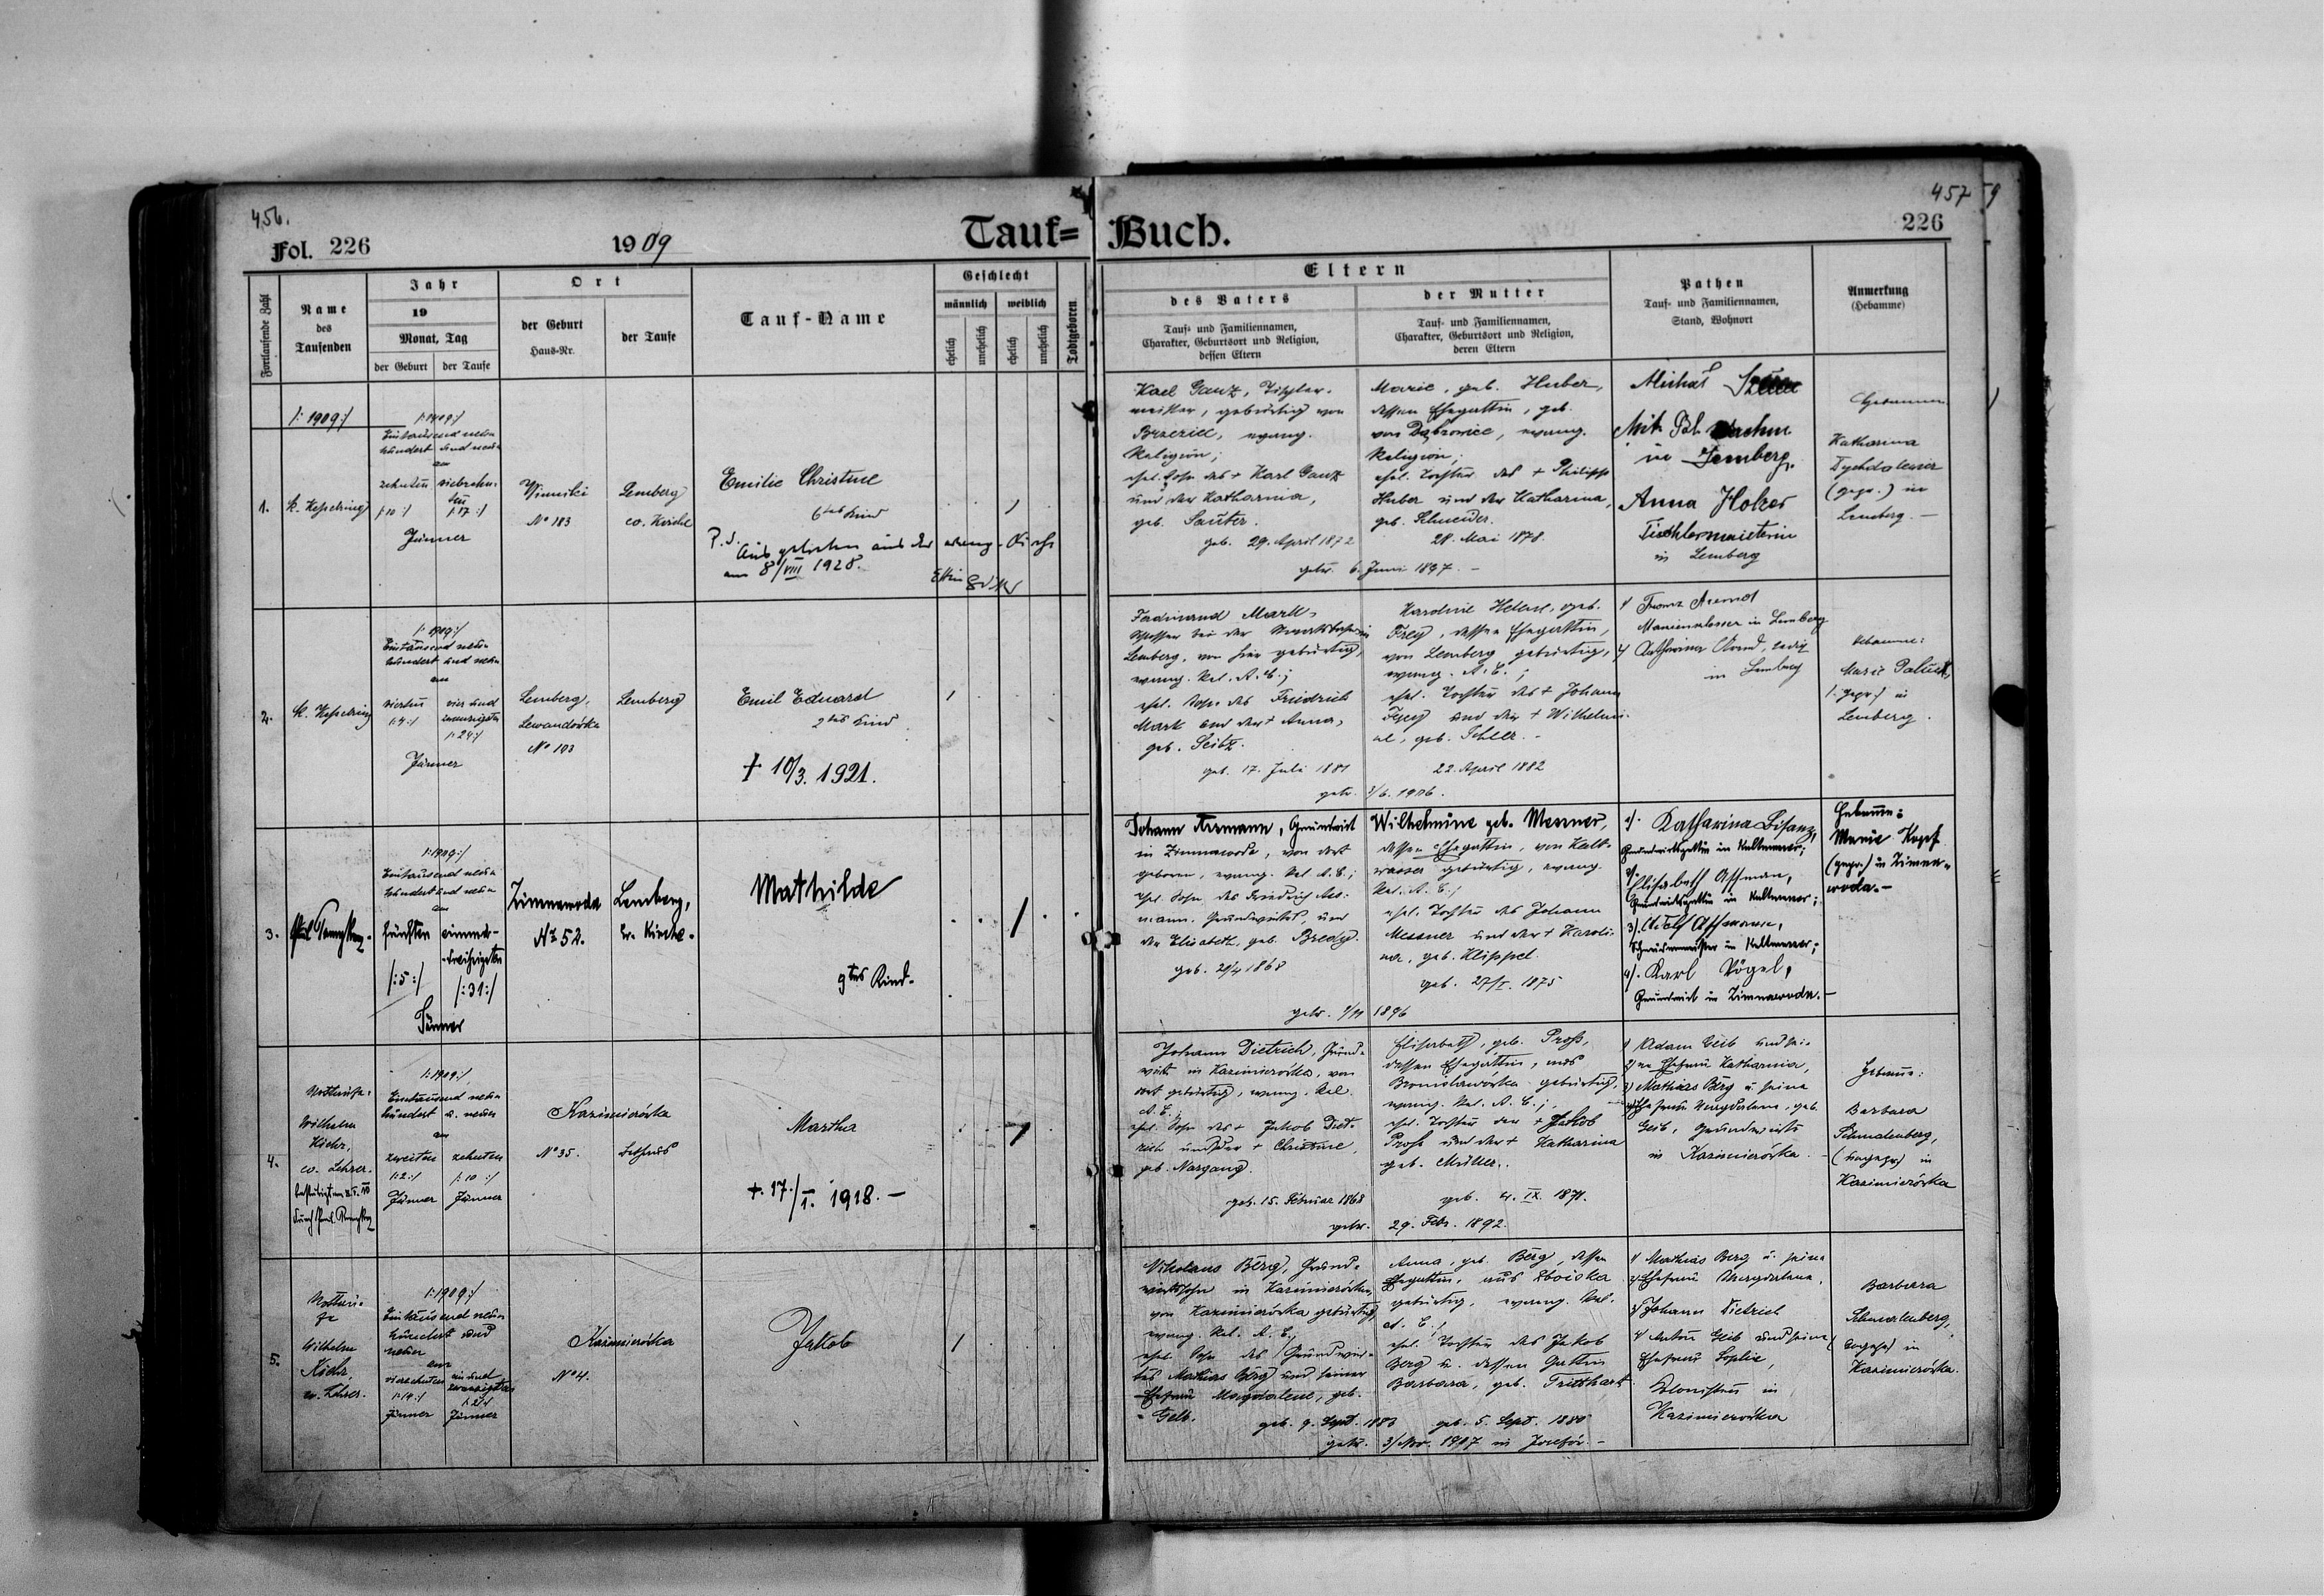 456.
457
9
Fol. 226
1909
Tauf=Buch.
226
Fortlaufende Zahl
Name
des
Taufenden
Jahr
19
Monat, Tag
der Geburt
der Taufe
Ort
der Geburt
Haus-Nr.
der Taufe
Tauf-Name
Geschlecht
männlich
weiblich
ehelich
unehelich
ehelich
unehelich
Todtgeboren
Eltern
des Vaters
Tauf- und Familiennamen,
Charakter, Geburtsort und Religion,
dessen Eltern
der Mutter
Tauf- und Familiennamen,
Charakter, Geburtsort und Religion,
deren Eltern
Pathen
Tauf- und Familiennamen,
Stand, Wohnort
Anmerkung
(Hebamme)
/: 1909 :/
1.
K. Kesselring
/: 1909 :/
Eintausend neun
hundert und neun
am
zehnten
/: 10 :/
siebzehn-
ten
/: 17 :/
Jänner
Winniki
No 183
Lemberg
ev. Kirche
Emilie Christine
6tes Kind
P.S.
Ausgetreten aus der evang. Kirche
am 8/VIII 1928.
Karl Ganz, Tischler-
meister, gebürtig von
evang.
Religion;
ehel. Sohn des + Karl Ganz
und der Katharina,
geb. Sauter.
geb. 29. April 1872
Marie, geb. Huber,
dessen Ehegattin, geb.
von evang.
Religion;
ehel. Tochter des + Philipp
Huber und der Katharina,
geb. Schneider.
28. Mai 1878.
getr. 6. Juni 1897. -
Michał
in Lemberg.
Anna Holzer
Tischlermeisterin
in Lemberg
Hebamme
Katharina
(gepr.) in
Lemberg. -
2.
K. Kesselring
/: 1909 :/
Eintausend neun
hundert und neun
am
vierten
/: 4 :/
vier und
zwanzigsten
/: 24 :/
Jänner
Lemberg,
Lewandówka
No 103
Lemberg
Emil Eduard
2tes Kind
+ 10/3. 1921.
Ferdinand Mark,
Schlosser bei der Staatsbahn in
Lemberg, von hier gebürtig,
evang. Rel. A. C.;
ehel. Sohn des Friedrich
Mark und der + Anna,
geb. Seitz.
geb. 17. Juli 1881
Karoline Helene, geb.
Frey, dessen Ehegattin,
von Lemberg gebürtig,
evang. A. C.;
ehel. Tochter des + Johann
Frey und der + Wilhelmi-
ne, geb.
22. April 1882
getr. 3/6. 1906.
1/ Franz Arend
in Lemberg
2/ Katharina Arend, ledig
in Lemberg
Hebamme:
Marie
/: gepr :/ in
Lemberg.
3.
/: 1909 :/
Eintausend neun
hundert und neun
am
fünften
/: 5 :/
einund-
dreißigsten
/: 31 :/
Jänner
Zimnawoda
No 52.
Lemberg,
ev. Kirche.
Mathilde
9tes Kind.
Johann Assmann, Grundwirt
in Zimnawoda, von dort
geboren, evang. Rel. A. C.;
ehel. Sohn des Friedrich Ass-
mann, Grundwirtes, und
der Elisabeth, geb. Bredy.
geb. 1868
Wilhelmine geb. Messner,
dessen Ehegattin, von Kalt-
wasser gebürtig, evang.
Rel. A. C.;
ehel. Tochter des Johann
Messner und der + Karoli-
na, geb. Klippel.
geb. 27/I. 1875
getr. 1/11 1896
1/. Katharina Bisanz,
Grundwirtsgattin in Kaltwasser;
2/. Elisabeth Assmann,
Grundwirtsgattin in Kaltwasser;
3/. Adolf Assmann,
in Kaltwasser;
4/. Karl Vögel,
Grundwirt in Zimnawoda. -
Hebamme:
Marie Kopf
(gepr.) in Zimna-
woda. -
4.
Nottaufe:
Wilhelm
Kiehr,
ev. Lehrer.
/: 1909 :/
Eintausend neun
hundert u. neun
am
zweiten
/: 2 :/
Jänner
zehnten
/: 10 :/
Jänner
Kazimierówka
No 35.
Bethaus
Martha
+. 17./I. 1918. -
Johann Dietrich, Grund-
wirt in Kazimierówka, von
dort gebürtig, evang. Rel.
A. C.;
ehel. Sohn des + Jakob Diet-
rich und der + Christine,
geb. Nargang.
geb. 15. Februar 1868
Elisabeth, geb. Proß,
dessen Ehegattin, aus
gebürtig,
evang. Rel. A. C.;
ehel. Tochter des + Jakob
Proß und der + Katharina
geb. Müller.
geb. 4. IX. 1871.
getr. 29. Febr. 1892.
1/ Adam Geib und sei-
2/ ne Ehefrau Katharina,
3/ Mathias Berg u. seine
4/ Ehefrau Magdalena, geb.
Geib, Grundwirte
in Kazimierówka. -
Hebamme:
Barbara
Schmalenberg,
(ungepr.) in
Kazimierówka
5.
Nottau-
fe
Wilhelm
Kiehr,
ev. Lehrer.
/: 1909 :/
Eintausend neun
hundert und
neun
am
vierzehnten
/: 14 :/
Jänner
ein und
zwanzigsten
/: 21 :/
Jänner
Kazimierówka
No 4.
Jakob
Nikolaus Berg, Grund-
wirtssohn in Kazimierówka,
von Kazimierówka gebürtig,
evang. Rel. A. C.;
ehel. Sohn des Grundwir-
tes Mathias Berg und seiner
Ehefrau Magdalene, geb.
Geib.
geb. 9. Sept. 1883
Anna, geb. Berg, dessen
Ehegattin, aus Zboiska
gebürtig, evang. Rel.
A. C.;
ehel. Tochter des Jakob
Berg u. dessen Gattin
Barbara, geb. Tritthart
geb. 5. Sept. 1888
getr. 3/Nov. 1907 in Josefów. -
1/ Mathias Berg u. seine
2/ Ehefrau Magdalena,
3/ Johann Dietrich
4/ Anton Geib und seine
Ehefrau Sophie,
Kolonisten in
Kazimierówka
Barbara
Schmalenberg,
(ungepr.) in
Kazimierówka.